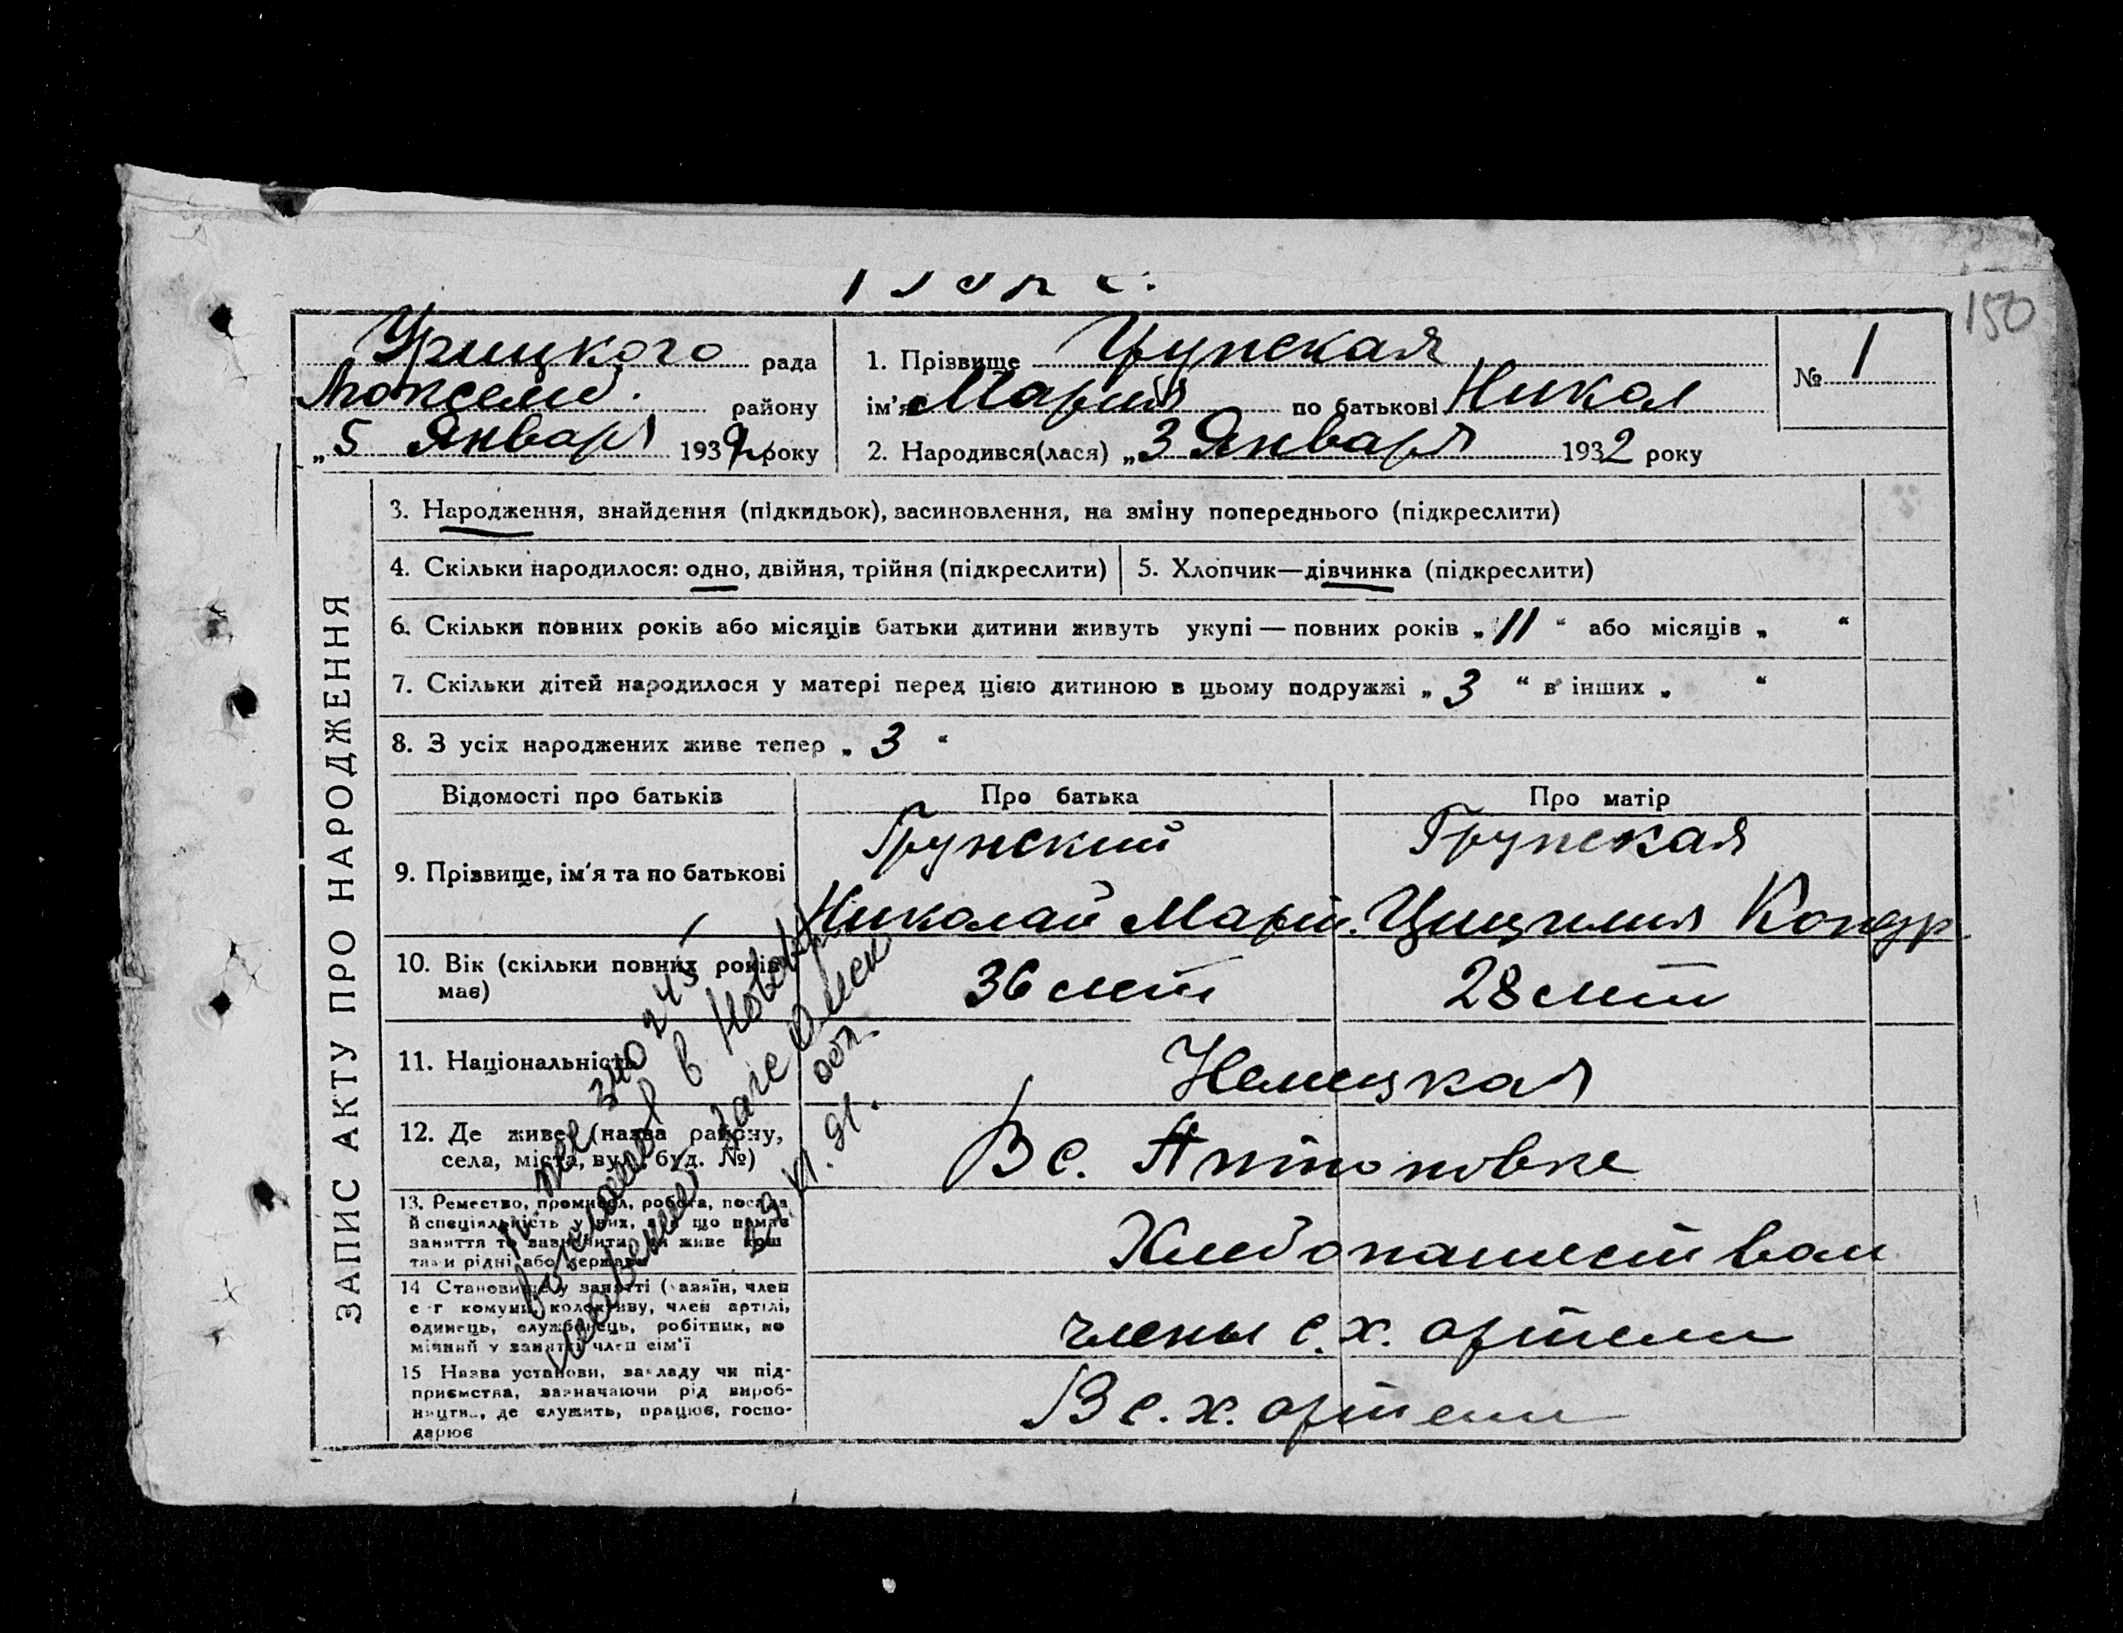 150
Урицкого рада
Локселмб. району
„ 5 Январь 1932 року
1. Прізвище Грунская
ім'я Мария по батькові Никол
2. Народився(лася) „ 3 Январь 1932 року
№ 1
ЗАПИС АКТУ ПРО НАРОДЖЕННЯ
3. Народження, знайдення (підкидьок), засиновлення, на зміну попереднього (підкреслити)
4. Скільки народилося: одно, двійня, трійня (підкреслити)
5. Хлопчик—дівчинка (підкреслити)
6. Скільки повних років або місяців батьки дитини живуть укупі — повних років „ 11 “ або місяців „ “
7. Скільки дітей народилося у матері перед цією дитиною в цьому подружжі „ 3 “ в інших „ “
8. З усіх народжених живе тепер „ 3 “
Відомості про батьків
Про батька
Про матір
9. Прізвище, ім'я та по батькові
Грунский
Николай Март.
Грунская
Цицилия Кондр
10. Вік (скільки повних років
має)
36 лет
28 лет
11. Національність
Немецкая
12. Де живе (назва району,
села, міста, вул., буд. №)
В с. Антоновке
13. Ремество, промисел, робота, посада
й спеціяльність у них, а як що немає
заняття то зазначити, чи живе кош
тами рідні або держави
Хлебопашеством
14 Становище у занятті (хазяїн, член
с-г комуни, колективу, член артілі,
одинець, службовець, робітник, по
мічний у занятті член сім'ї
члены с.х. артели
15 Назва установи, закладу чи під-
приємства, зазначаючи рід вироб-
ництва, де служить, працює, госпо-
дарює
В с.х. артели
обл.